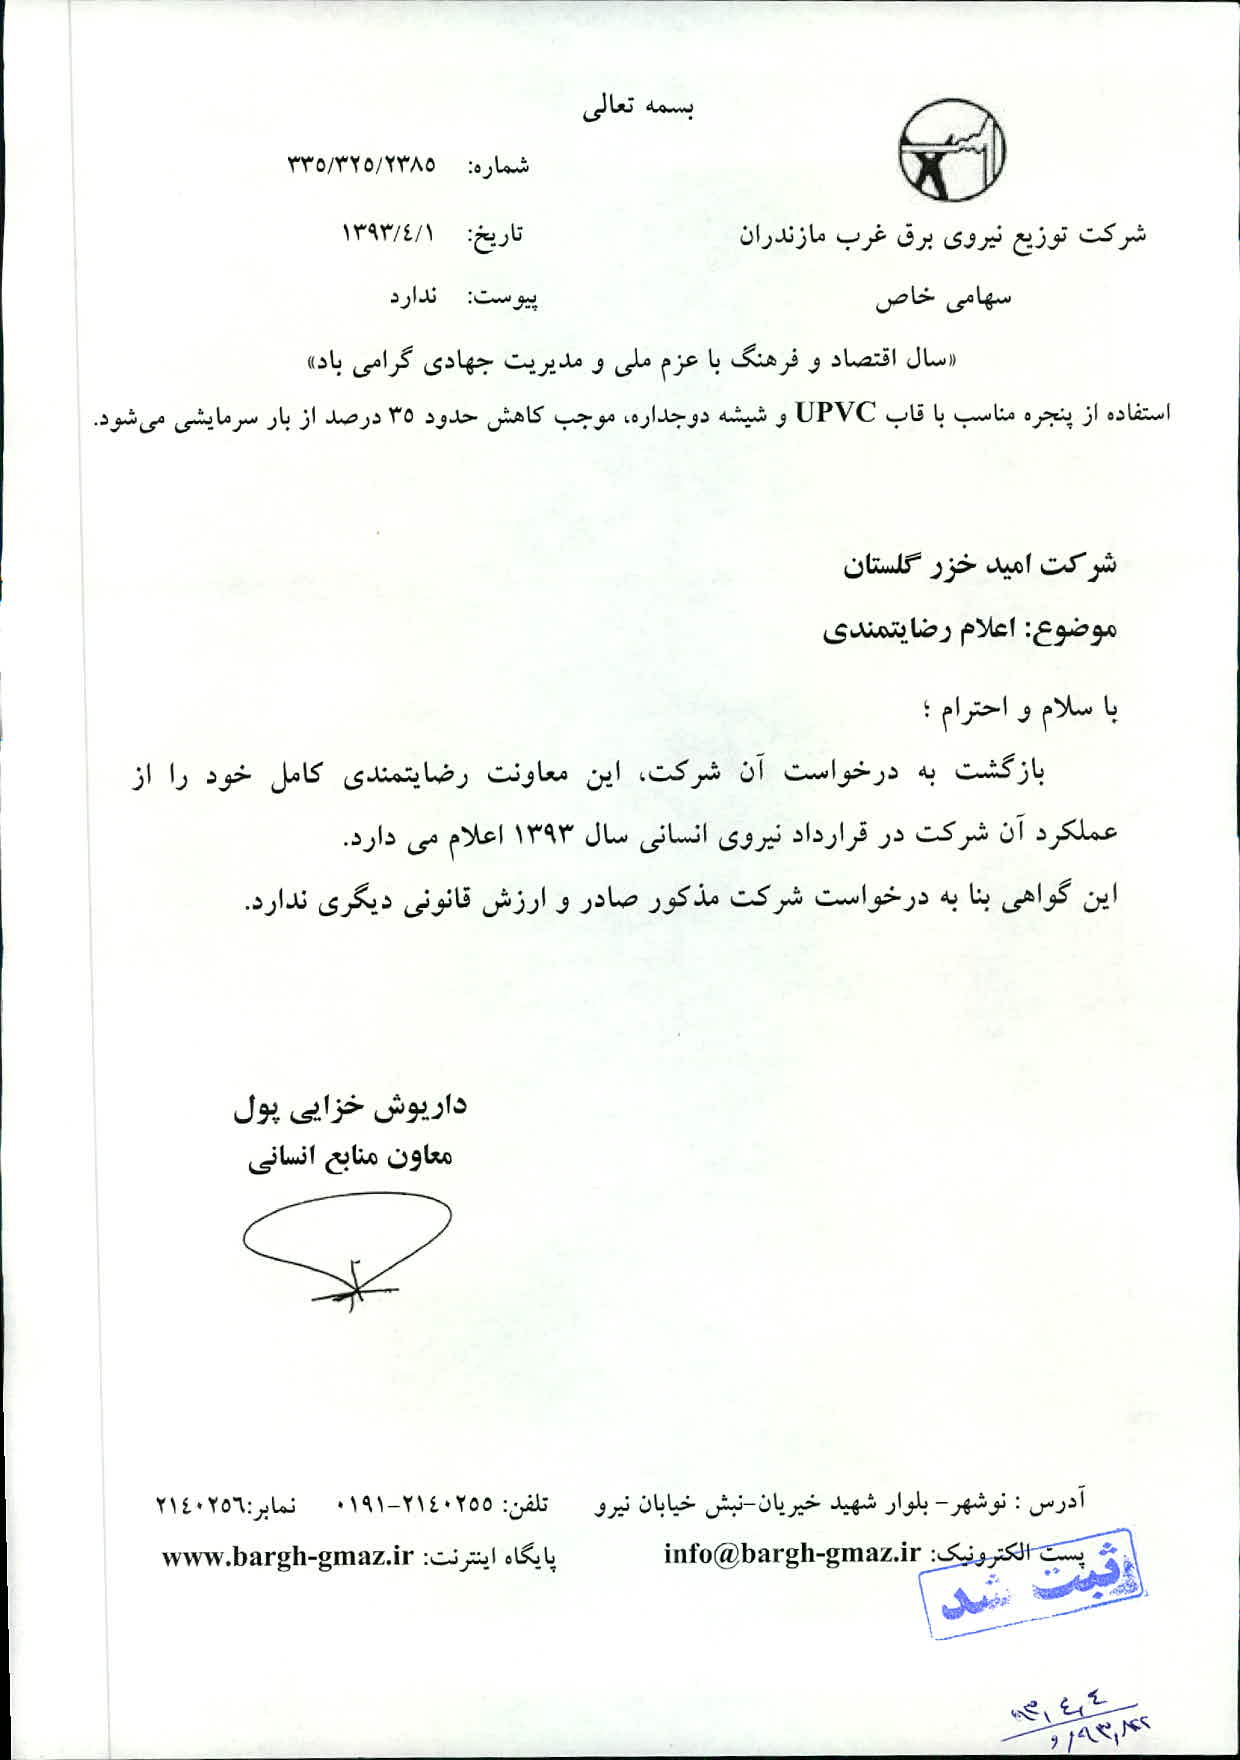 بسمه تعالی
شماره: ۳۳۵/۳۲۵/۲۳۸۵
تاریخ: ۱۳۹۳/٤/۱
پیوست: ندارد
شرکت توزیع نیروی برق غرب مازندران
سهامی خاص
«سال اقتصاد و فرهنگ با عزم ملی و مدیریت جهادی گرامی باد»
استفاده از پنجره مناسب با قاب UPVC و شیشه دوجداره، موجب کاهش حدود ۳۵ درصد از بار سرمایشی می‌شود.
شرکت امید خزر گلستان
موضوع: اعلام رضایتمندی
با سلام و احترام ؛
بازگشت به درخواست آن شرکت، این معاونت رضایتمندی کامل خود را از
عملکرد آن شرکت در قرارداد نیروی انسانی سال ۱۳۹۳ اعلام می دارد.
این گواهی بنا به درخواست شرکت مذکور صادر و ارزش قانونی دیگری ندارد.
داریوش خزایی پول
معاون منابع انسانی
آدرس : نوشهر- بلوار شهید خیریان-نبش خیابان نیرو تلفن: ۲۱٤۰۲۵۵-۰۱۹۱ نمابر:۲۱٤۰۲۵٦
پست الکترونیک: info@bargh-gmaz.ir پایگاه اینترنت: www.bargh-gmaz.ir
ثبت شد
۹۳,٤,٤